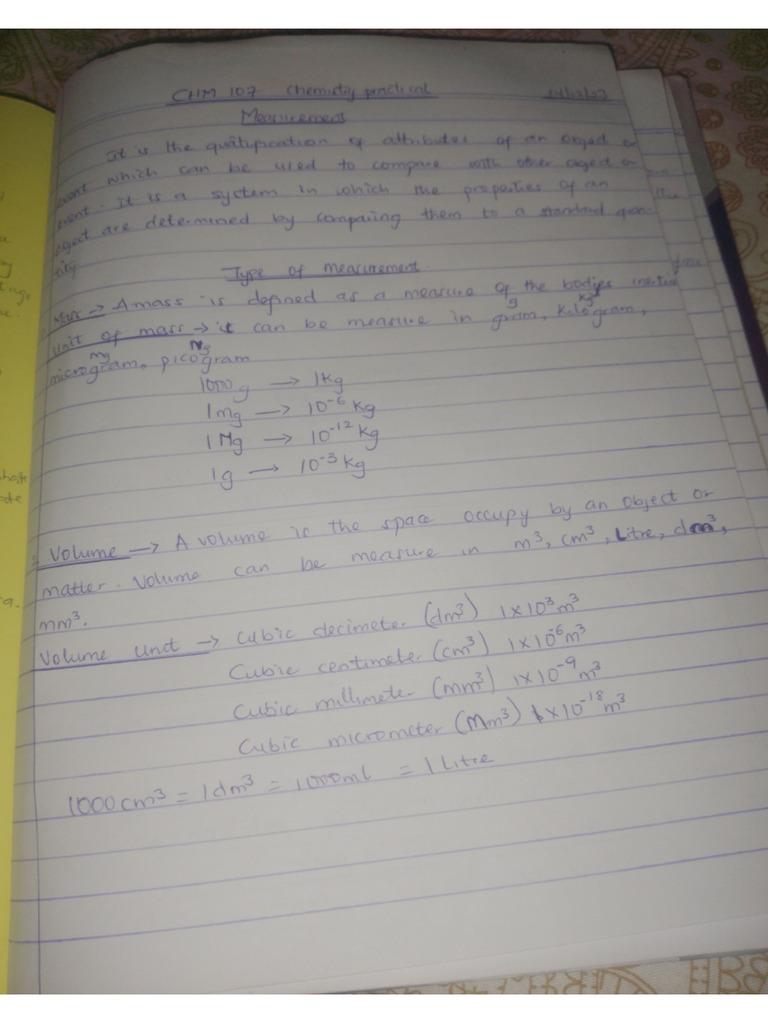 CHM 107 Chemistry practical 14/12/23
Measurement
It is the quatification of attributes of an object or
event which can be used to compare with other object or
event. It is a system in which the properties of an
object are determined by comparing them to a standard quan-
tity.
Type of measurement.
Mass → A mass is defined as a measure of the bodies inertia
g kg
unit of mass → it can be measure in gram, kilogram,
Mg Ng
microgram, picogram
1000g → 1kg
1mg → 10⁻⁶ kg
1Mg → 10⁻¹² kg
1g → 10⁻³ kg
Volume → A volume is the space occupy by an object or
matter. Volume can be measure in m³, cm³, Litre, dm³,
mm³.
Volume Unit → Cubic decimeter (dm³) 1×10³m³
Cubic centimeter (cm³) 1×10⁻⁶m³
Cubic millimeter (mm³) 1×10⁻⁹m³
Cubic micrometer (Mm³) 1×10⁻¹⁸m³
1000cm³ = 1dm³ = 1000ml = 1 Litre